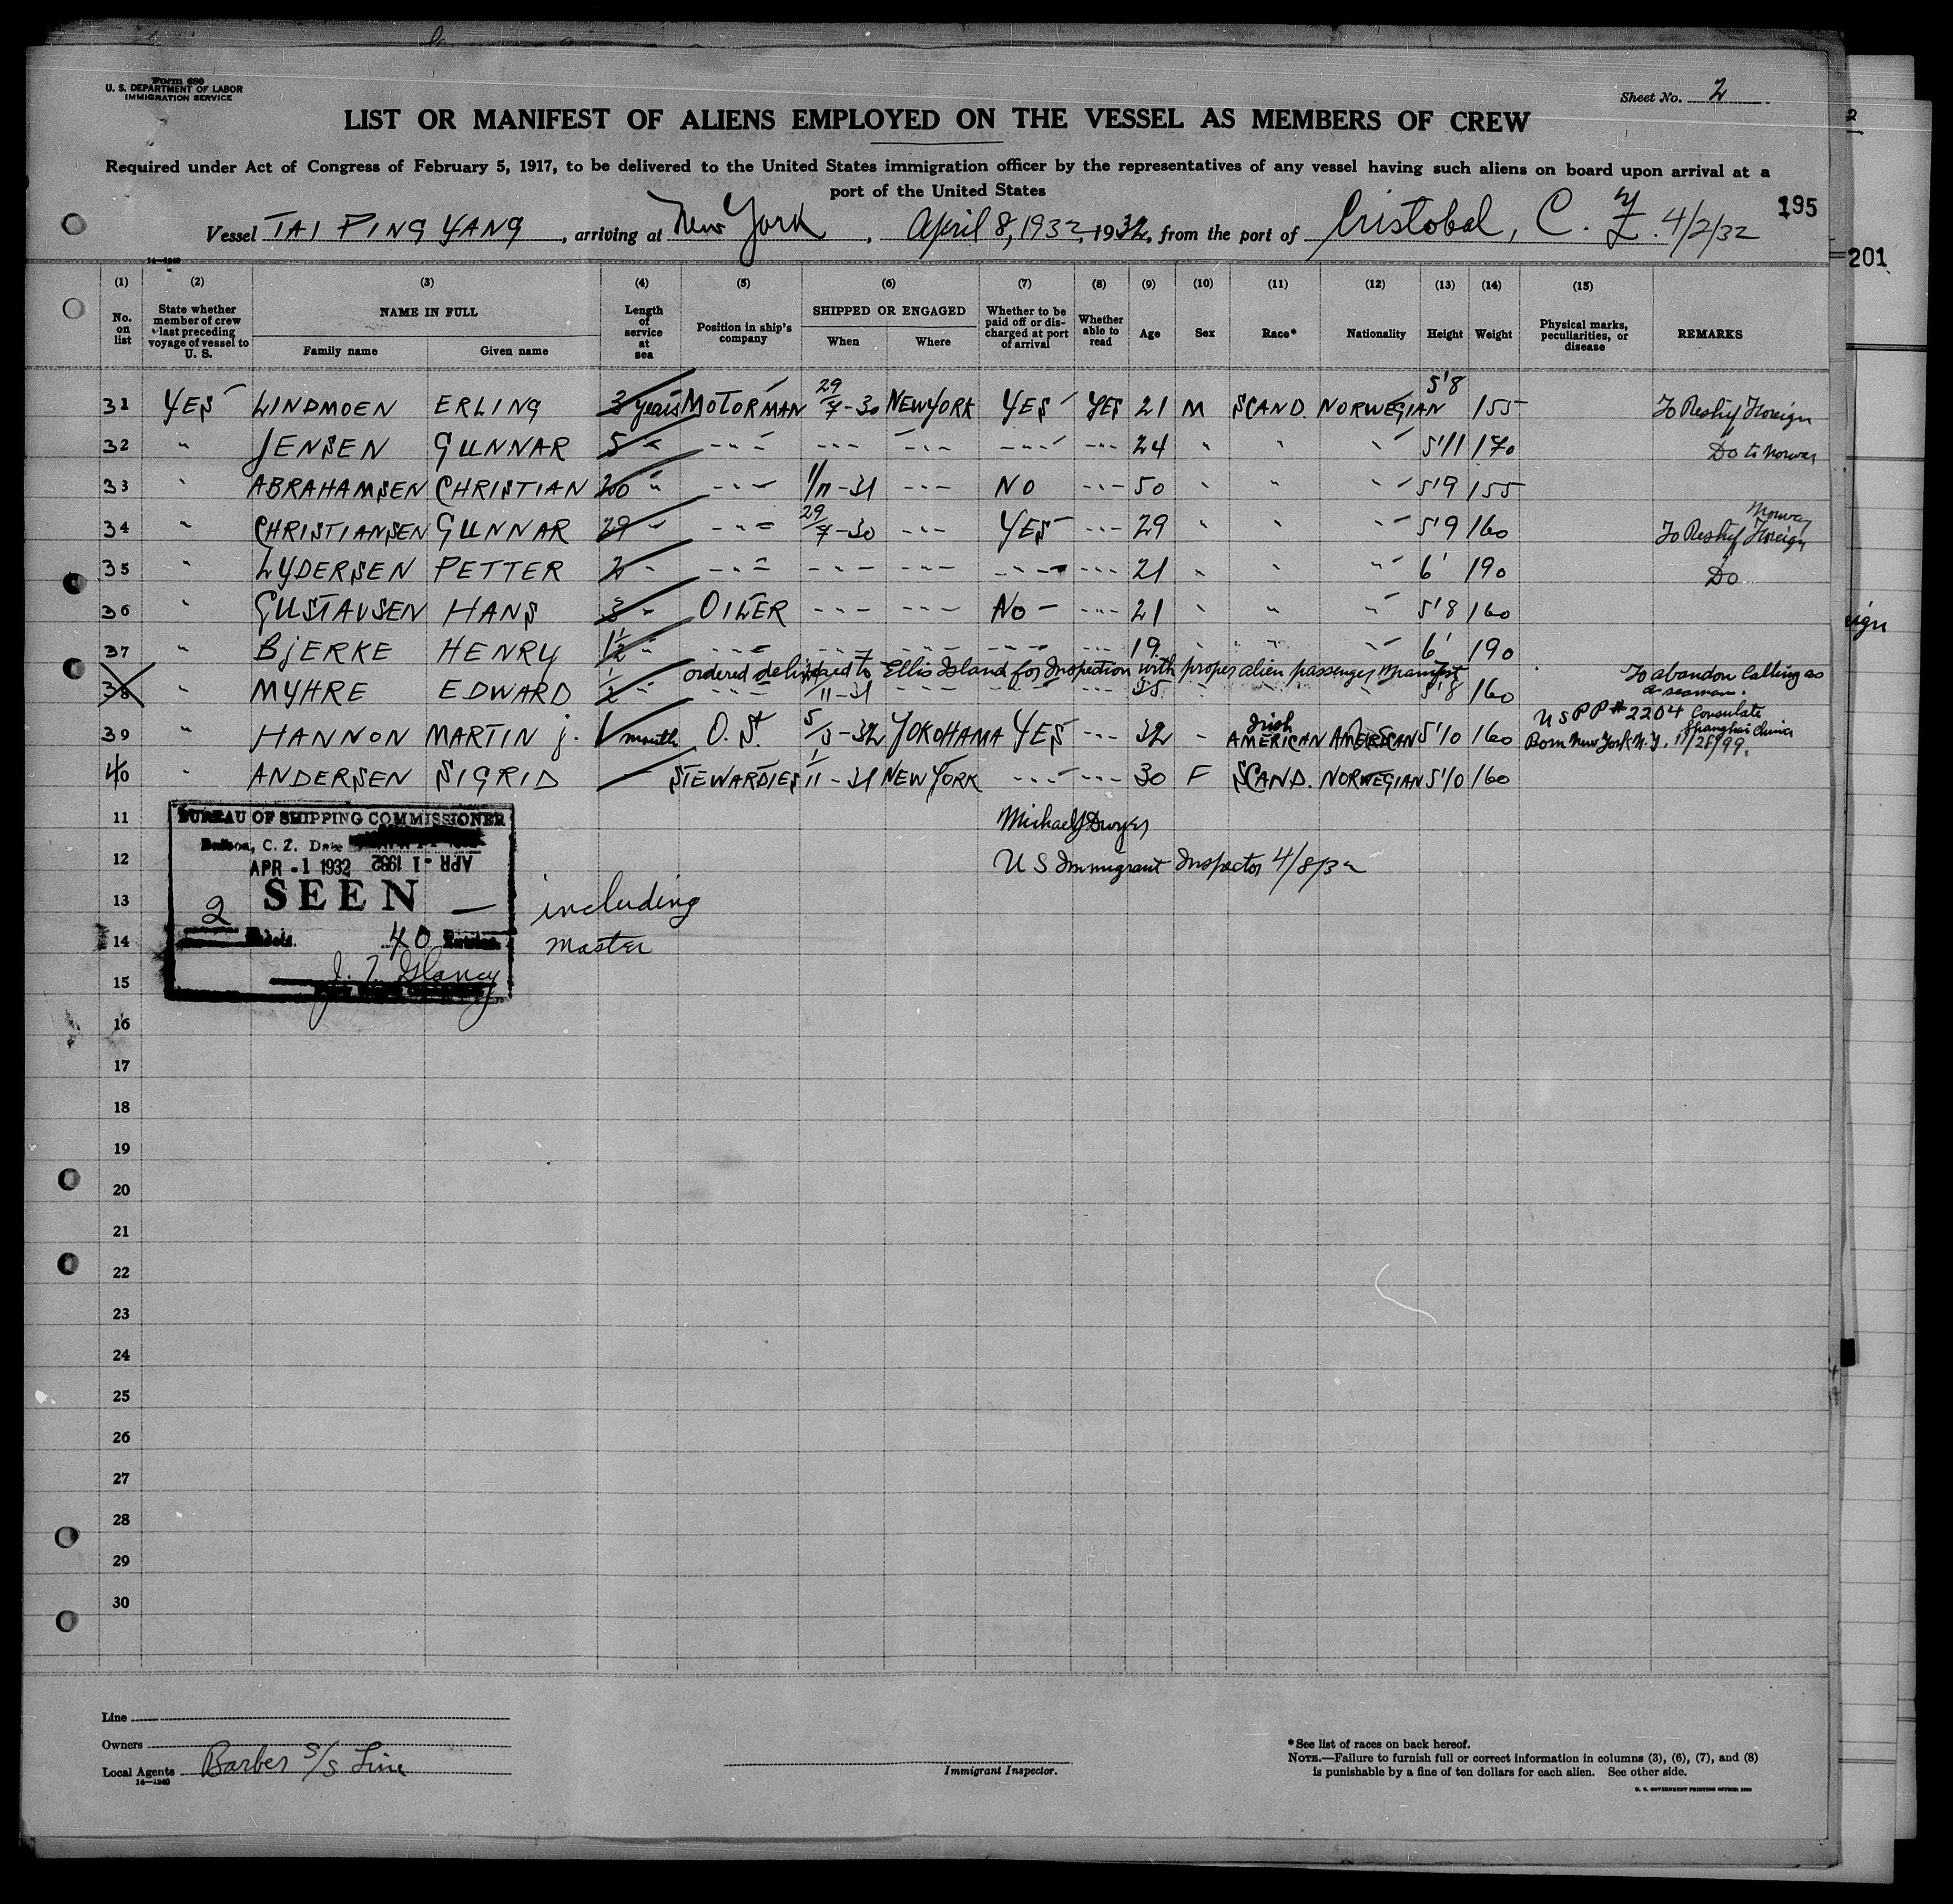 Form 680
U. S. DEPARTMENT OF LABOR
IMMIGRATION SERVICE
Sheet No. 2
LIST OR MANIFEST OF ALIENS EMPLOYED ON THE VESSEL AS MEMBERS OF CREW
Required under Act of Congress of February 5, 1917, to be delivered to the United States immigration officer by the representatives of any vessel having such aliens on board upon arrival at a
port of the United States
195
Vessel TAI PING YANG, arriving at New York, April 8, 1932, 1932, from the port of Cristobal, C. Z. 4/2/32
201
14—1240
(1) (2) (3) (4) (5) (6) (7) (8) (9) (10) (11) (12) (13) (14) (15)
No. on list State whether member of crew last preceding voyage of vessel to U. S. NAME IN FULL Family name Given name Length of service at sea Position in ship's company SHIPPED OR ENGAGED When Where Whether to be paid off or discharged at port of arrival Whether able to read Age Sex Race* Nationality Height Weight Physical marks, peculiarities, or disease REMARKS
31 YES LINDMOEN ERLING 3 years MOTORMAN 29/7-30 NEWYORK YES YES 21 M SCAND. NORWEGIAN 5'8 155 To Reship Foreign
32 " JENSEN GUNNAR 5 " --- --- --- --- --- 24 " " " 5'11 170 Do to Norway
33 " ABRAHAMSEN CHRISTIAN 20 " --- 1/11-31 --- NO --- 50 " " " 5'9 155
34 " CHRISTIANSEN GUNNAR 29 " --- 29/7-30 --- YES --- 29 " " " 5'9 160 To Reship Foreign Norway
35 " LYDERSEN PETTER 2 " --- --- --- --- --- 21 " " " 6' 190 Do
36 " GUSTAVSEN HANS 3 " OILER --- --- No --- 21 " " " 5'8 160
37 " BJERKE HENRY 1 1/2 " --- --- --- --- --- 19 " " " 6' 190
ordered delivered to Ellis Island for Inspection with proper alien passenger Manifest
38 " MYHRE EDWARD 1/2 " --- 1/11-31 --- --- --- 35 " " " 5'8 160 To abandon calling as a seaman.
39 " HANNON MARTIN J. 1 month O.S. 5/3-32 YOKOHAMA YES --- 32 - Irish AMERICAN AMERICAN 5'10 160 USPP #2204 Consulate Shanghai China
Born New York N.Y. 11/28/99.
40 " ANDERSEN SIGRID STEWARDIES 1/11-31 NEWYORK --- --- 30 F SCAND. NORWEGIAN 5'10 160
11 Michael J Dwyer
12 U S Immigrant Inspector 4/8/32
BUREAU OF SHIPPING COMMISSIONER
Balboa, C. Z. Date
APR -1 1932 APR -1 1932
SEEN
2 40
including
master
J. Z. Glancy
13
14
15
16
17
18
19
20
21
22
23
24
25
26
27
28
29
30
Line
Owners
Local Agents Barber S/S Line
14—1240
Immigrant Inspector.
*See list of races on back hereof.
NOTE.—Failure to furnish full or correct information in columns (3), (6), (7), and (8)
is punishable by a fine of ten dollars for each alien. See other side.
U. S. GOVERNMENT PRINTING OFFICE: 1930